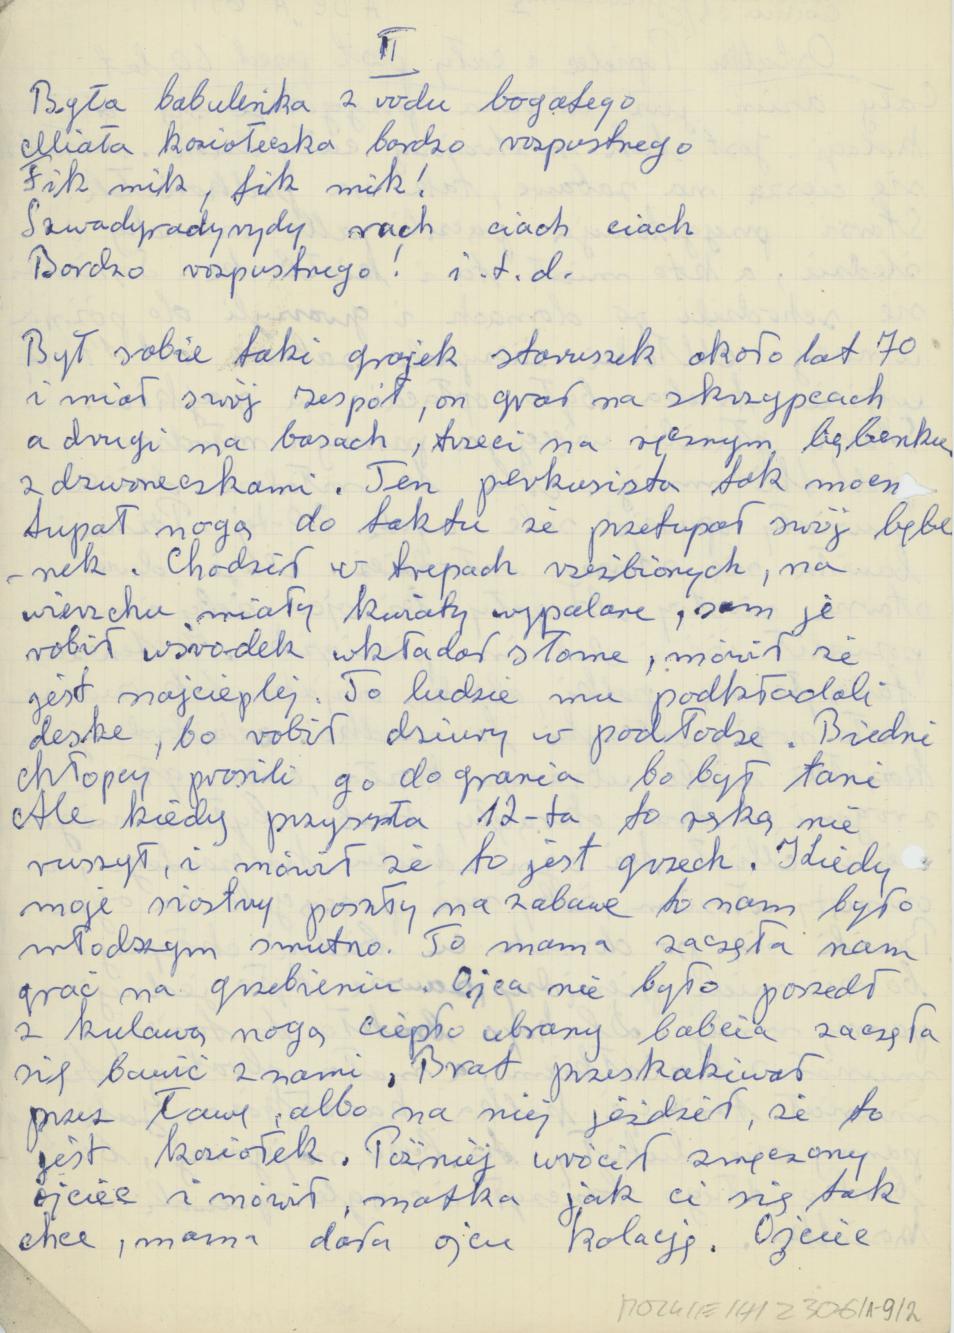 II
Była babuleńka z rodu bogatego
Miała koziołeczka bardzo rozpustnego
Fik mik, fik mik!
Szwadyradyrydy rach ciach ciach
Bardzo rozpustnego! i.t.d.
Był sobie taki grajek staruszek około lat 70
i miał swój zespół, on grał na skrzypcach
a drugi na basach, trzeci na ręcznym bębenku
z dzwoneczkami. Ten perkusista tak mocn
tupał nogą do taktu że przetupał swój bębe
-nek. Chodził w trepach rzeźbionych, na
wierzchu miały kwiaty wypalane, sam je
robił wśrodek wkładał słome, mówił że
jest najcieplej. To ludzie mu podkładali
deske, bo robił dziury w podłodze. Biedni
chłopcy prosili go do grania bo był tani
Ale kiedy przyszła 12-ta to ręką nie
ruszył, i mówił że to jest grzech. Kiedy
moje siostry poszły na zabawe to nam było
młodszym smutno. To mama zaczęła nam
grać na grzebieniu. Ojca nie było poszedł
z kulawą nogą ciepło ubrany babcia zaczęła
się bawić z nami, Brat przeskakiwał
przez ławę, albo na niej jeździł, że to
jest koziołek. Póżniej wrócił zmęczony
ojciec i mówił, matka jak ci się tak
chce, mama dała ojcu kolację. Ojciec